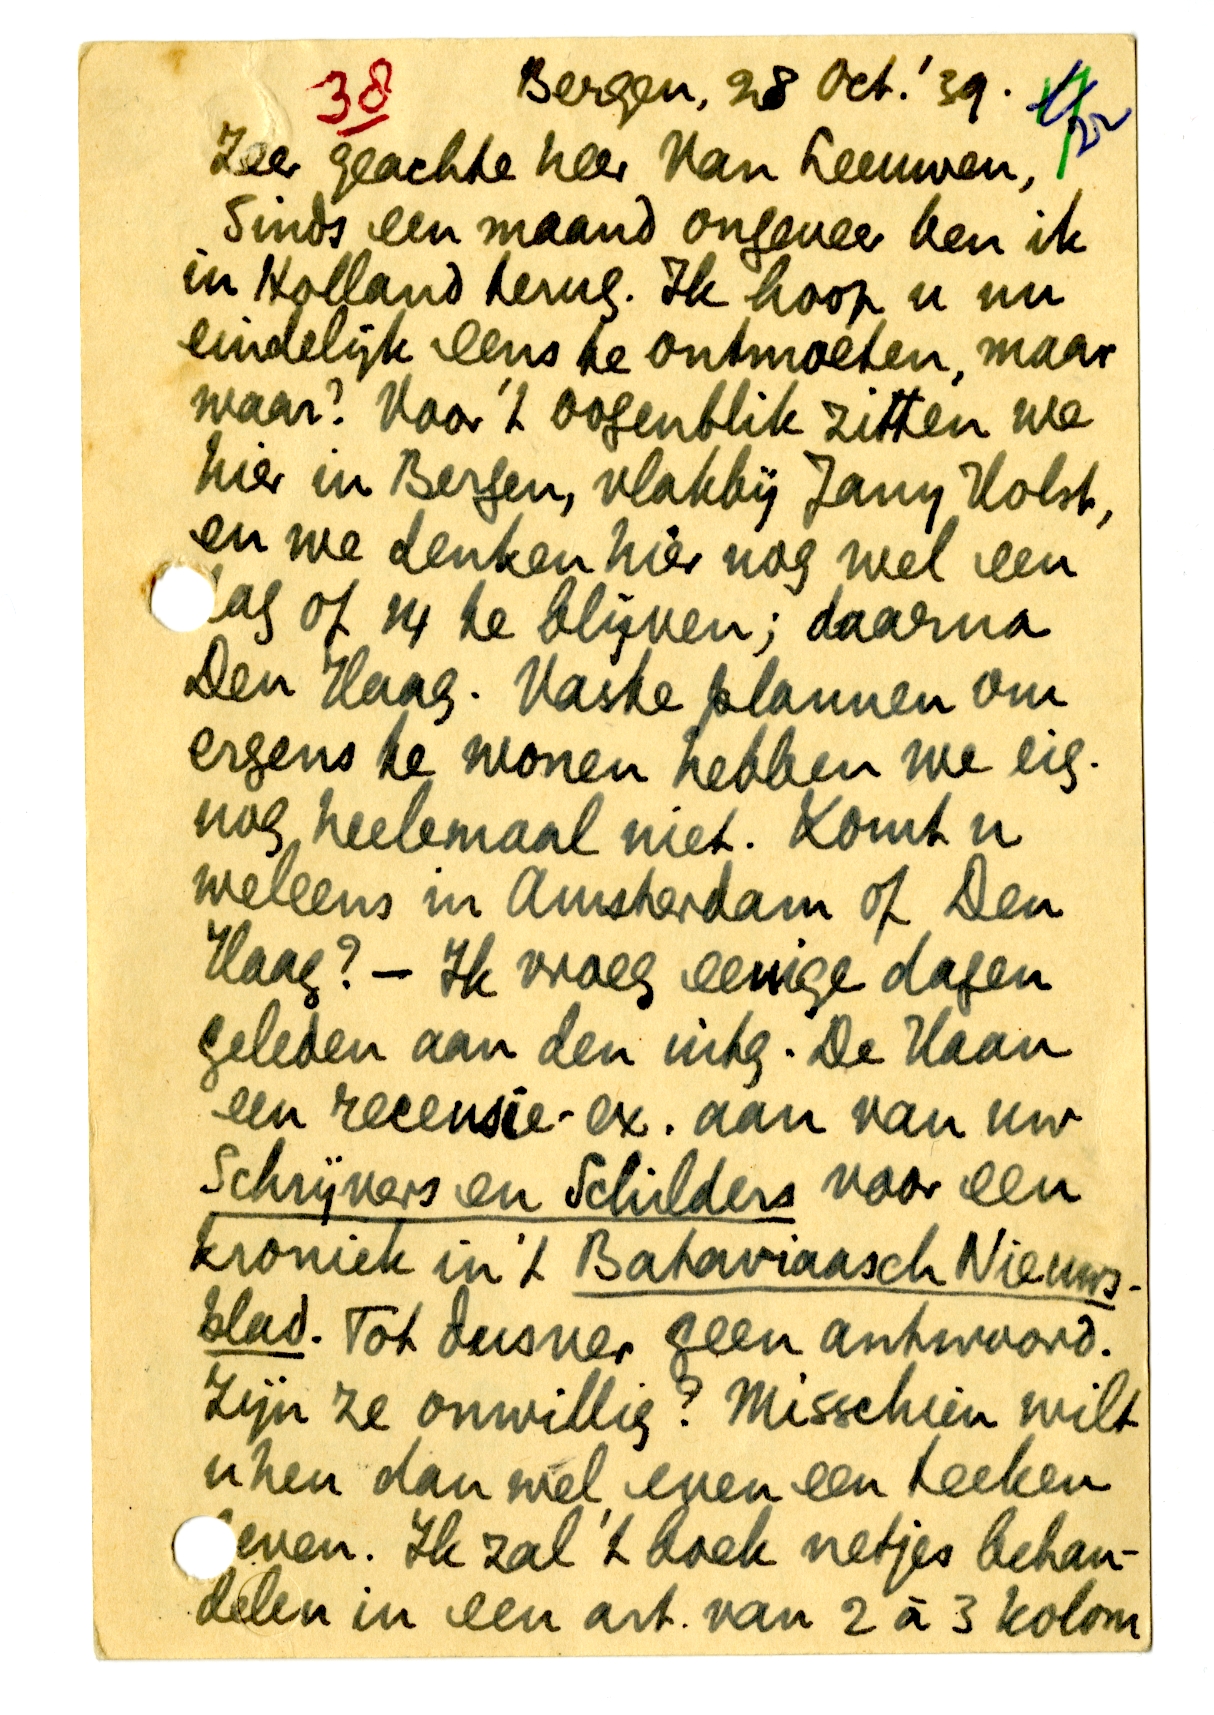 38
Bergen, 28 Oct. '39.
Zeer geachte heer Van Leeuwen,
Sinds een maand ongeveer ben ik
in Holland terug. Ik hoop u nu
eindelijk eens te ontmoeten, maar
waar? Voor 't oogenblik zitten we
hier in Bergen, vlakbij Jany Holst,
en we denken hier nog wel een
dag of 14 te blijven; daarna
Den Haag. Vaste plannen om
ergens te wonen hebben we eig.
nog heelemaal niet. Komt u
weleens in Amsterdam of Den
Haag? — Ik vroeg eenige dagen
geleden aan den uitg. De Haan
een recensie-ex. aan van uw
Schrijvers en Schilders voor een
kroniek in 't Bataviaasch Nieuws-
blad. Tot dusver geen antwoord.
Zijn ze onwillig? Misschien wilt
u hen dan wel even een teeken
geven. Ik zal 't boek netjes behan-
delen in een art. van 2 à 3 kolom